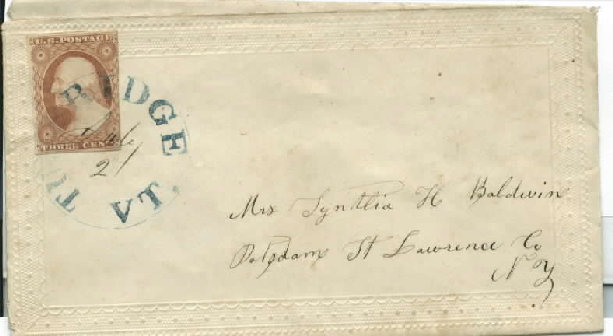 U.S. POSTAGE
THREE CEN
RIDGE
VT.
21
Mrs Synthia H Baldwin
Potsdam St Lawrence Co
N Y